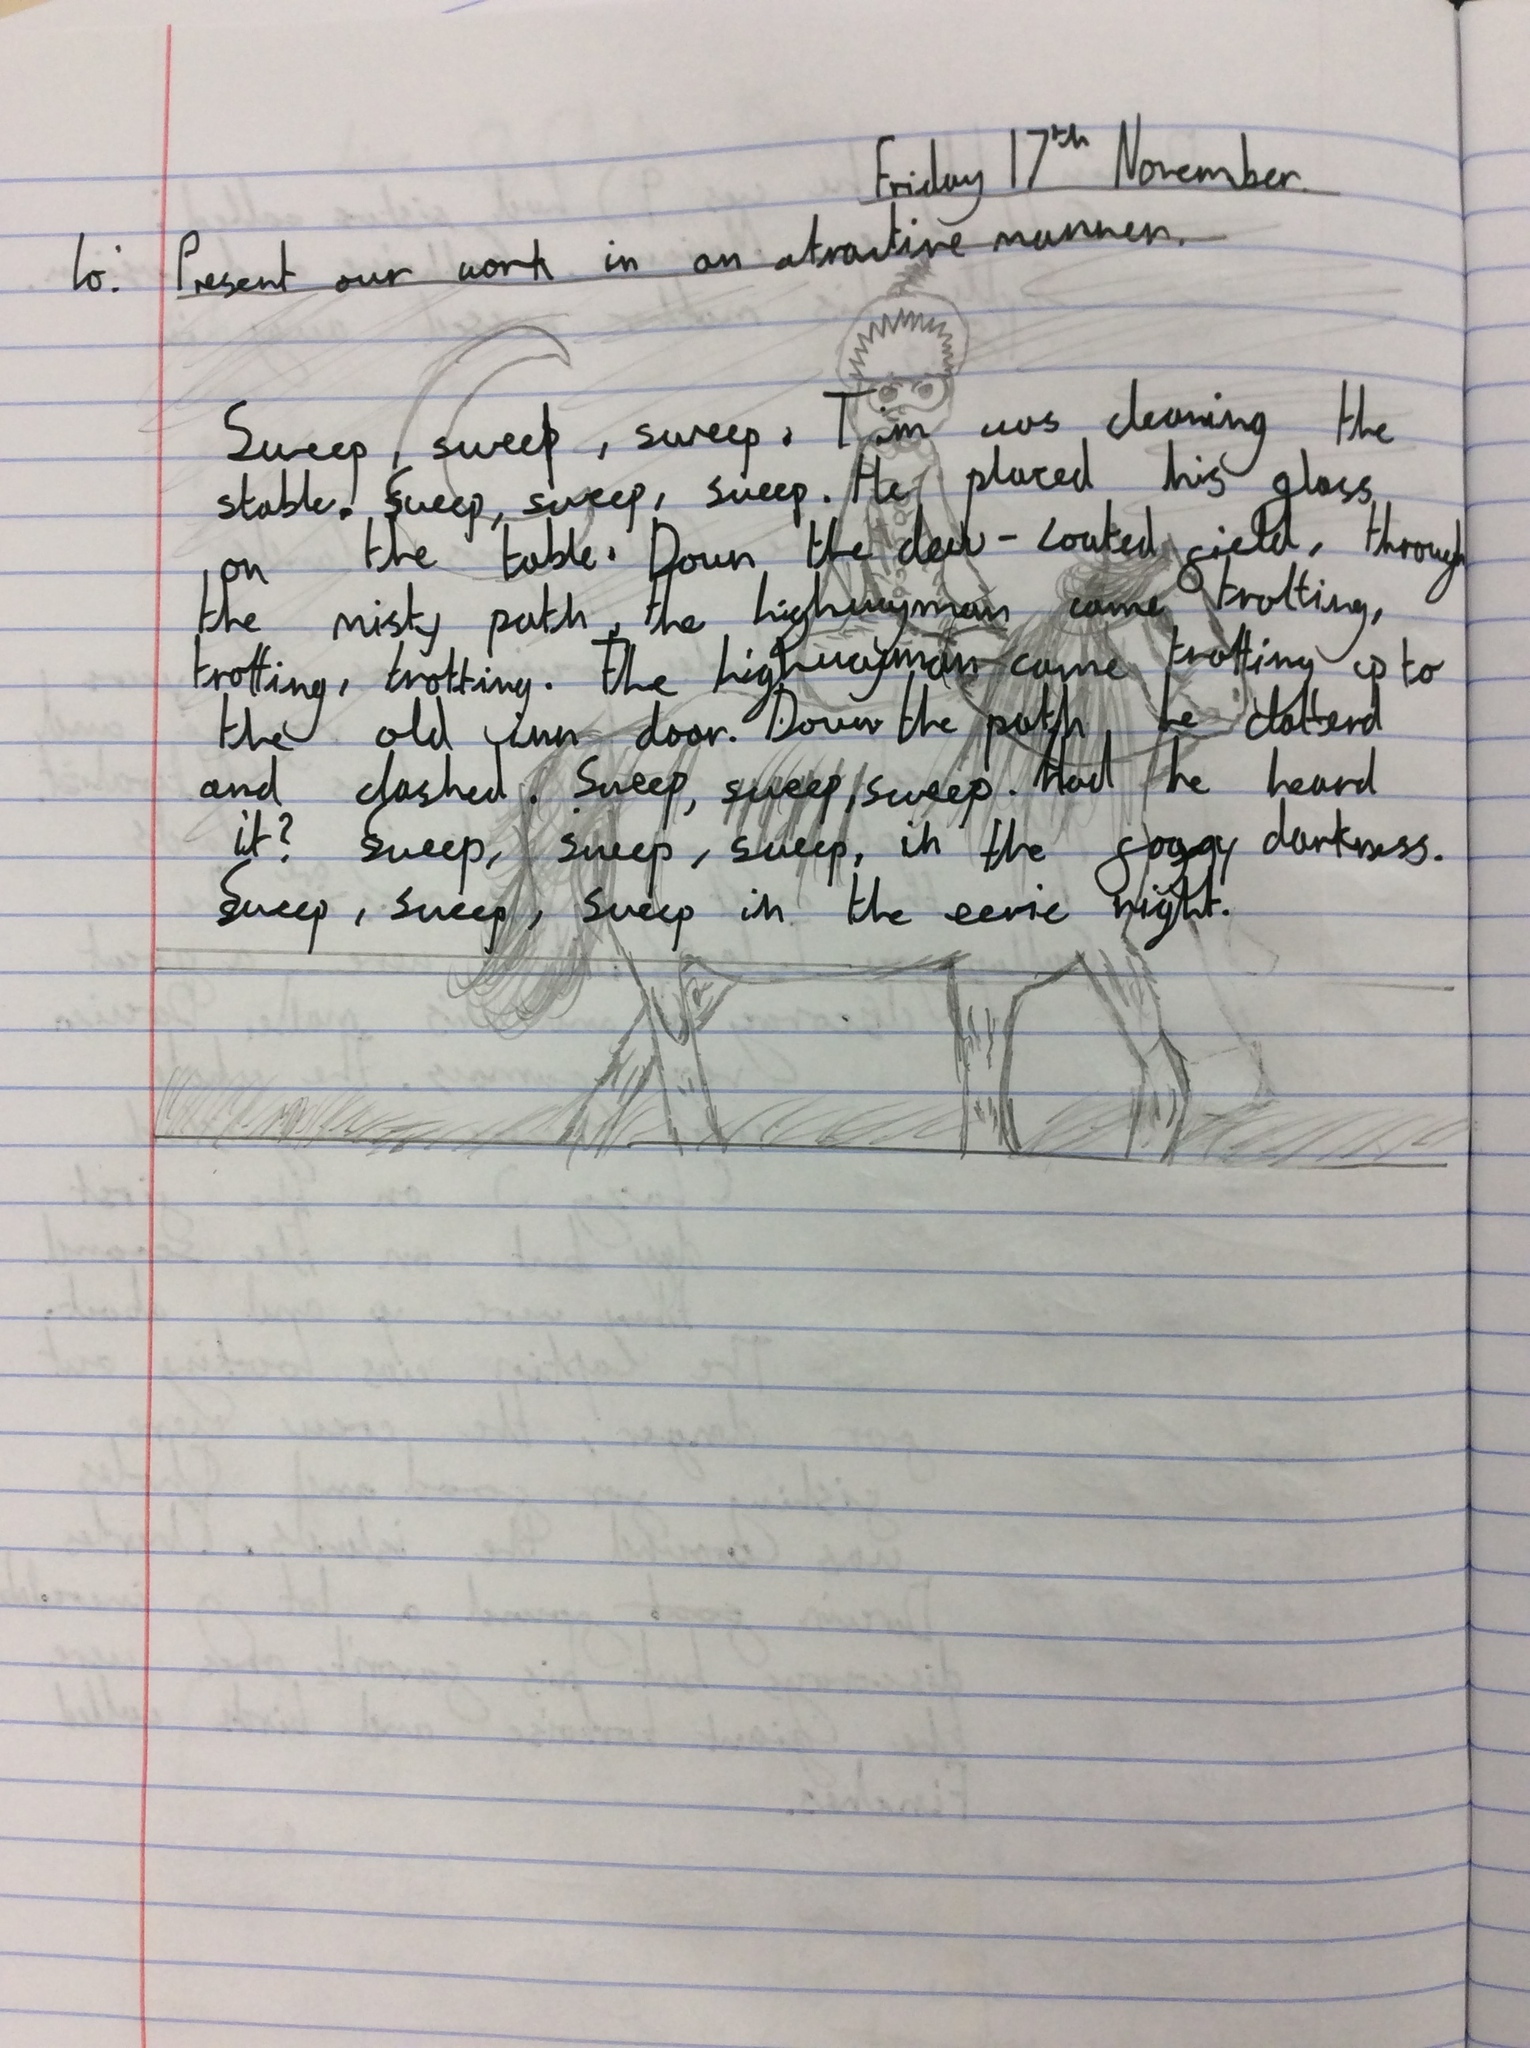 Friday 17th November.
Lo: Present our work in an atractive manner.
Sweep, sweep, sweep. Tim was cleaning the
stable. Sweep, sweep, sweep. He placed his glass
on the table. Down the dew-coated field, through
the misty path, the highwayman came trotting,
trotting, trotting. The highwayman came trotting up to
the old inn door. Down the path he clatterd
and clashed. Sweep, sweep, sweep. Had he heard
it? Sweep, sweep, sweep, in the foggy darkness.
Sweep, sweep, sweep in the eerie night.